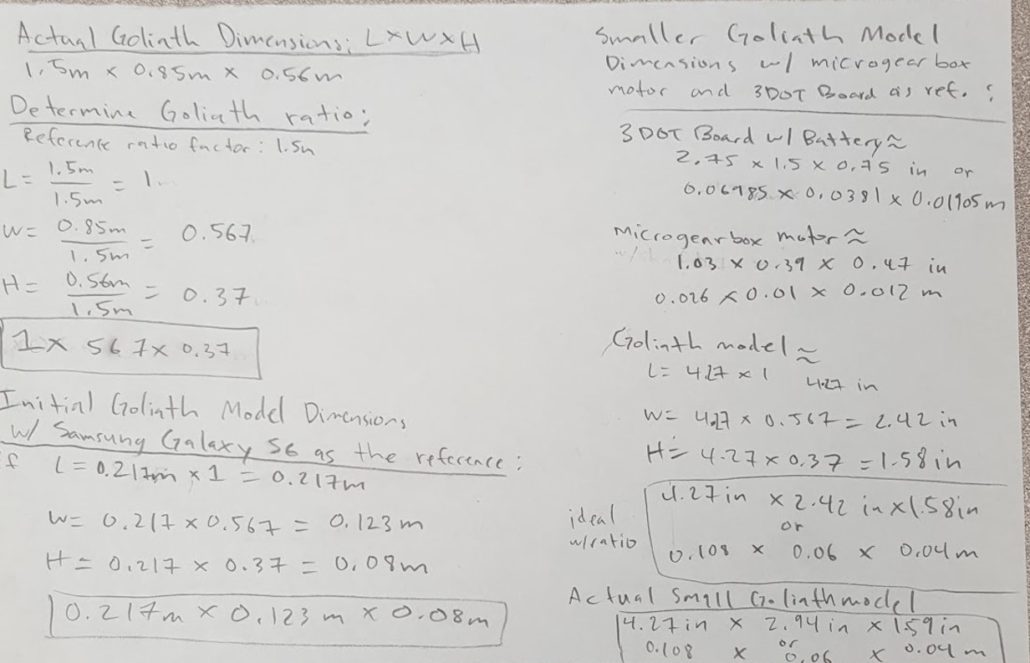 Actual Goliath Dimensions: L×W×H
1.5m × 0.85m × 0.56m
Determine Goliath ratio:
Reference ratio factor: 1.5m
L = 1.5m / 1.5m = 1.
W = 0.85m / 1.5m = 0.567
H = 0.56m / 1.5m = 0.37
1 × 567 × 0.37
Initial Goliath Model Dimensions
w/ Samsung Galaxy S6 as the reference:
if L = 0.217m × 1 = 0.217m
W = 0.217 × 0.567 = 0.123 m
H = 0.217 × 0.37 = 0.08m
0.217m × 0.123 m × 0.08m
Smaller Goliath Model
Dimensions w/ microgearbox
motor and 3DOT Board as ref. :
3DOT Board w/ Battery ≈
2.75 × 1.5 × 0.75 in or
0.06985 × 0.0381 × 0.01905m
Microgearbox motor ≈
1.03 × 0.39 × 0.47 in
0.026 × 0.01 × 0.012 m
Goliath model ≈
L = 4.27 × 1 4.27 in
W = 4.27 × 0.567 = 2.42 in
H = 4.27 × 0.37 = 1.58 in
ideal
w/ratio
4.27in × 2.42 in × 1.58in
or
0.108 × 0.06 × 0.04 m
Actual Small Goliath model
4.27 in × 2.94 in × 1.59 in
or
0.108 × 0.06 × 0.04 m